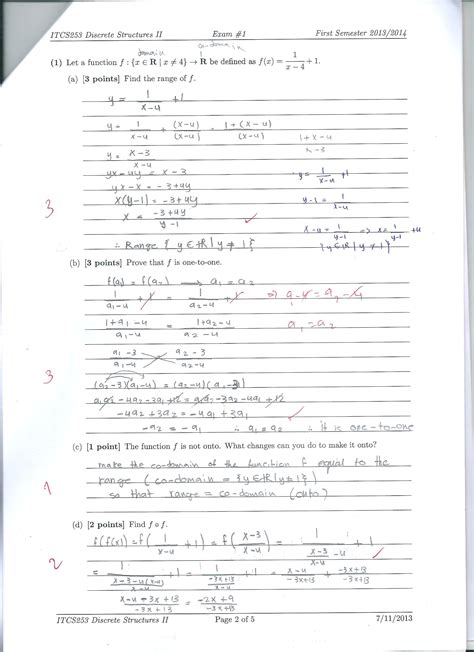 ITCS253 Discrete Structures II Exam #1 First Semester 2013/2014
domain co-domain
(1) Let a function f : {x ∈ R | x ≠ 4} → R be defined as f(x) = 1/(x−4) + 1.
(a) [3 points] Find the range of f.
y = 1/(x-4) + 1
y = 1/(x-4) + (x-4)/(x-4) = 1+(x-4)/(x-4)
1+x-4
x-3
y = (x-3)/(x-4)
yx-4y = x-3
y = 1/(x-4) + 1
yx-x = -3+4y
x(y-1) = -3+4y
y-1 = 1/(x-4)
x = (-3+4y)/(y-1)
3
x-4 = 1/(y-1) => x = 1/(y-1) + 4
∴ Range { y ∈ R | y ≠ 1 }
{ y ∈ R | y ≠ 1 }
(b) [3 points] Prove that f is one-to-one.
f(a1) = f(a2) → a1 = a2
1/(a1-4) + 1 = 1/(a2-4) + 1 => a1-4 = a2-4
(1+a1-4)/(a1-4) = (1+a2-4)/(a2-4)
a1 = a2
(a1-3)/(a1-4) (a2-3)/(a2-4)
3
(a2-3)(a1-4) = (a2-4)(a1-3)
a1a2 -4a2 -3a1 +12 = a1a2 -3a2 -4a1 +12
-4a2 + 3a2 = -4a1 + 3a1
-a2 = -a1 ∴ a1 = a2 ∴ it is one-to-one
(c) [1 point] The function f is not onto. What changes can you do to make it onto?
make the co-domain of the function f equal to the
range ( co-domain = {y ∈ R | y ≠ 1} )
1
so that range = co-domain (onto)
(d) [2 points] Find f ∘ f.
f(f(x)) = f( 1/(x-4) + 1 ) = f( (x-3)/(x-4) ) = 1/((x-3)/(x-4) - 4) + 1
2
= 1/((x-3-4(x-4))/(x-4)) + 1 = 1/((-3x+13)/(x-4)) + 1 = (x-4)/(-3x+13) + (-3x+13)/(-3x+13)
(x-4-3x+13)/(-3x+13) = (-2x+9)/(-3x+13)
ITCS253 Discrete Structures II Page 2 of 5 7/11/2013